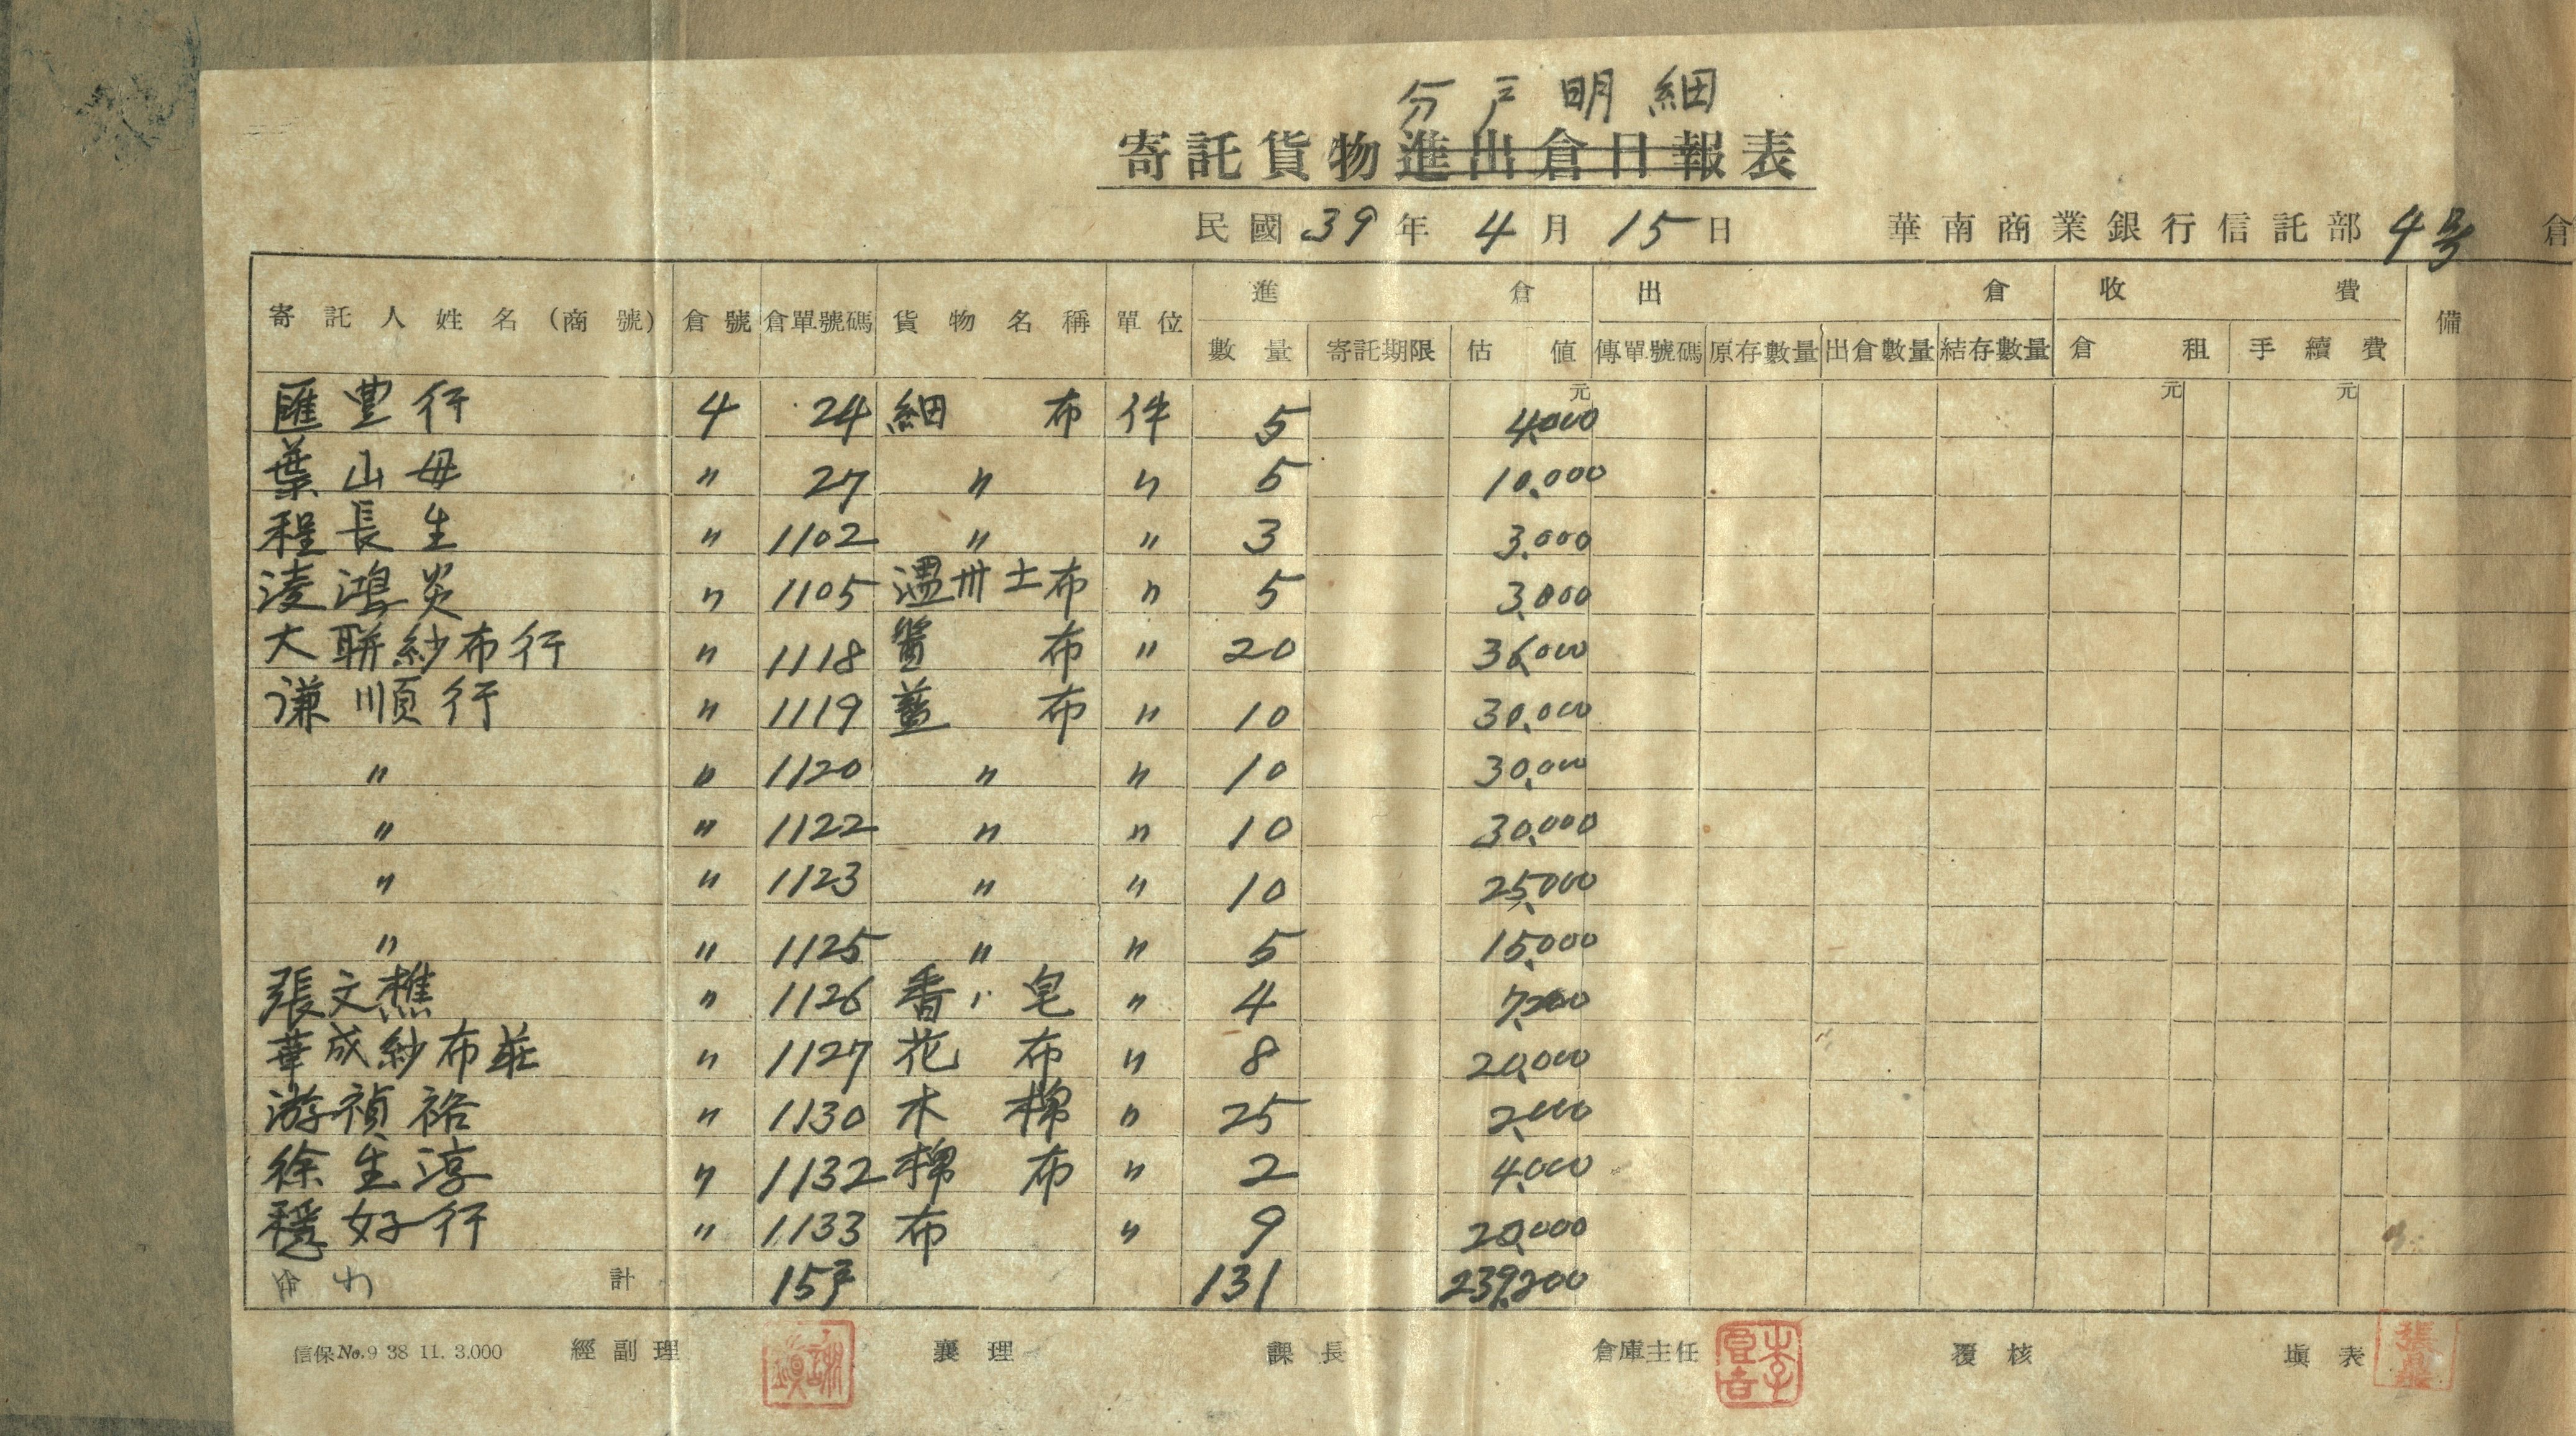 分戶明細
寄託貨物進出倉日報表
民國39年4月15日 華南商業銀行信託部4号 倉
寄託人姓名(商號) 倉號 倉單號碼 貨物名稱 單位 進倉 出倉 收費 備
數量 寄託期限 估值 傳單號碼 原存數量 出倉數量 結存數量 倉租 手續費
元 元 元
匯豐行 4 24 細布 件 5 4,000
葉山母 〃 27 〃 〃 5 10,000
程長生 〃 1102 〃 〃 3 3,000
凌鴻炎 〃 1105 溫卅土布 〃 5 3,000
大聯紗布行 〃 1118 布 〃 20 36,000
谦順行 〃 1119 藍布 〃 10 30,000
〃 〃 1120 〃 〃 10 30,000
〃 〃 1122 〃 〃 10 30,000
〃 〃 1123 〃 〃 10 25,000
〃 〃 1125 〃 〃 5 15,000
張文樵 〃 1126 香皂 〃 4 7,200
華成紗布莊 〃 1127 花布 〃 8 20,000
游禎裕 〃 1130 木棉 〃 25 2,000
徐生淳 〃 1132 棉布 〃 2 4,000
穩好行 〃 1133 布 〃 9 20,000
計 15戶 131 239,200
信保No.9 38 11. 3.000 經副理 襄理 課長 倉庫主任 覆核 塡表